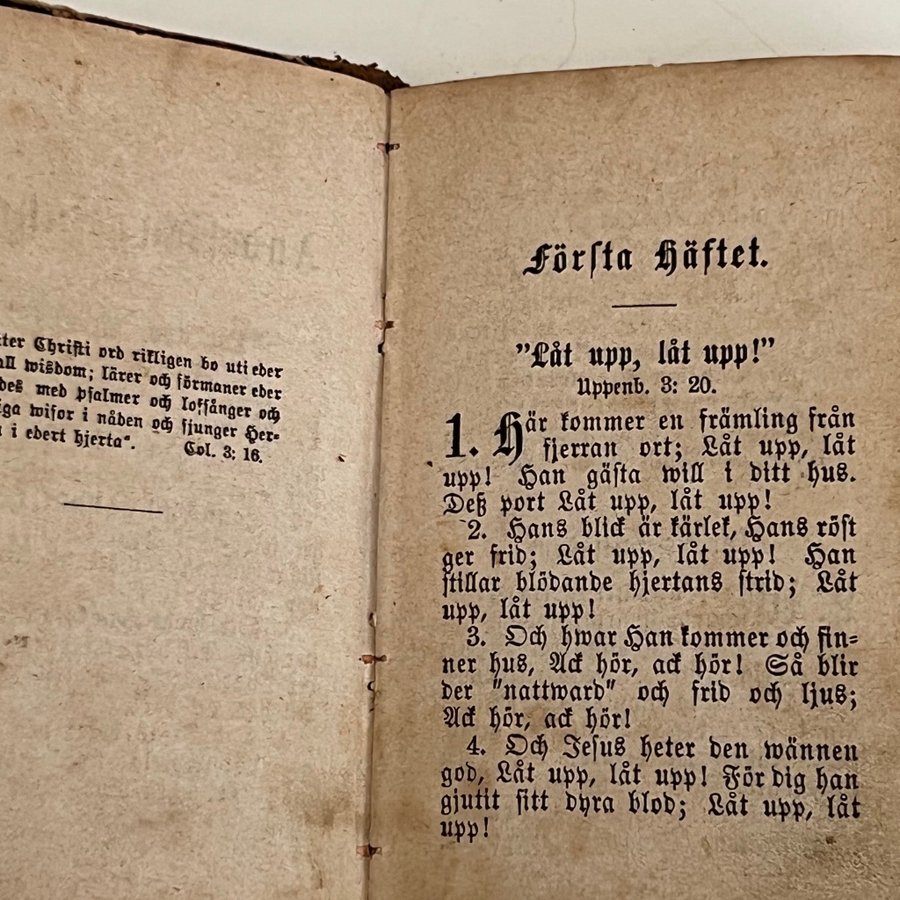 Christi ord rikligen bo uti eder
wisdom; lärer och förmaner eder
med psalmer och lofsånger och
wisor i nåden och sjunger Her-
i edert hjerta“. Col. 3; 16.
Första Häftet.
”Låt upp, låt upp!”
Uppenb. 3: 20.
1. Här kommer en främling från
fjerran ort; Låt upp, låt
upp! Han gästa will i ditt hus.
Deß port Låt upp, låt upp!
2. Hans blick är kärlek, Hans röst
ger frid; Låt upp, låt upp! Han
stillar blödande hjertans strid; Låt
upp, låt upp!
3. Och hwar Han kommer och fin-
ner hus, Ack hör, ack hör! Så blir
der "nattward" och frid och ljus;
Ack hör, ack hör!
4. Och Jesus heter den wännen
god, Låt upp, låt upp! För dig han
gjutit sitt dyra blod; Låt upp, låt
upp!